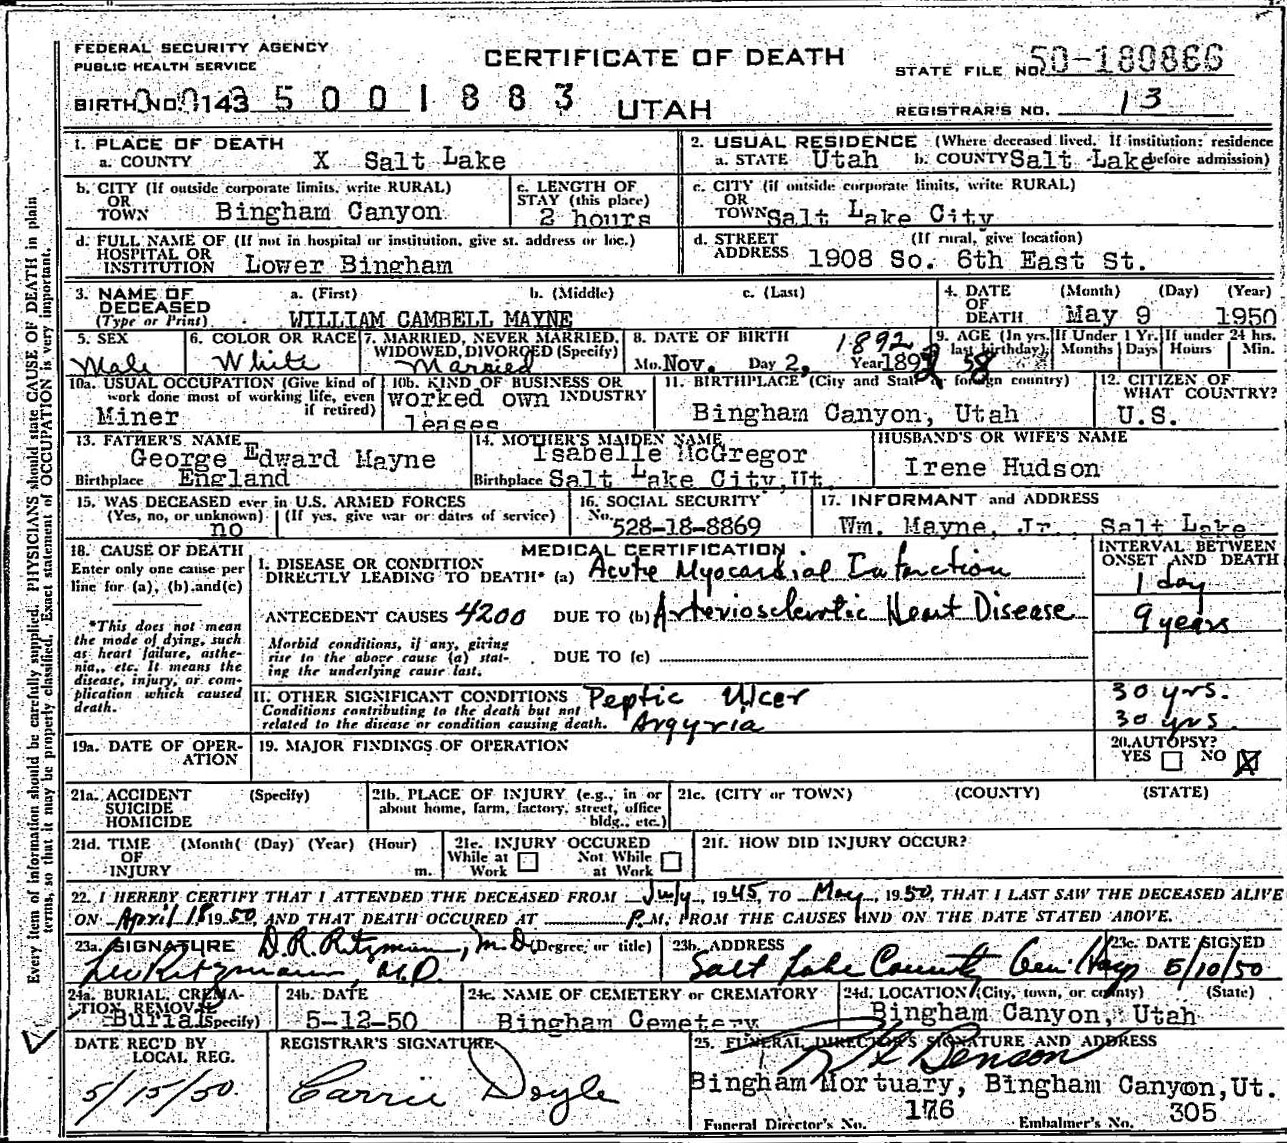 FEDERAL SECURITY AGENCY
PUBLIC HEALTH SERVICE
CERTIFICATE OF DEATH
STATE FILE NO. 50-180866
BIRTH NO. 0143 5 0 0 1 8 8 3
UTAH
REGISTRAR'S NO. 13
1. PLACE OF DEATH
a. COUNTY X Salt Lake
2. USUAL RESIDENCE (Where deceased lived. If institution: residence before admission)
a. STATE Utah b. COUNTY Salt Lake
b. CITY (If outside corporate limits, write RURAL)
OR
TOWN Bingham Canyon
c. LENGTH OF
STAY (this place)
2 hours
c. CITY (if outside corporate limits, write RURAL)
OR
TOWN Salt Lake City
d. FULL NAME OF (If not in hospital or institution, give st. address or loc.)
HOSPITAL OR
INSTITUTION Lower Bingham
d. STREET (If rural, give location)
ADDRESS 1908 So. 6th East St.
3. NAME OF a. (First) b. (Middle) c. (Last)
DECEASED
(Type or Print) WILLIAM CAMBELL MAYNE
4. DATE (Month) (Day) (Year)
OF
DEATH May 9 1950
5. SEX
Male
6. COLOR OR RACE
White
7. MARRIED, NEVER MARRIED,
WIDOWED, DIVORCED (Specify)
Married
8. DATE OF BIRTH 1892
Mo. Nov. Day 2, Year 189
9. AGE (In yrs. last birthday) 58
If Under 1 Yr. Months Days
If under 24 hrs. Hours Min.
10a. USUAL OCCUPATION (Give kind of
work done most of working life, even
if retired)
Miner
10b. KIND OF BUSINESS OR
INDUSTRY
worked own
leases
11. BIRTHPLACE (City and State or foreign country)
Bingham Canyon, Utah
12. CITIZEN OF
WHAT COUNTRY?
U.S.
13. FATHER'S NAME
George Edward Mayne
Birthplace England
14. MOTHER'S MAIDEN NAME
Isabelle McGregor
Birthplace Salt Lake City, Ut.
HUSBAND'S OR WIFE'S NAME
Irene Hudson
15. WAS DECEASED ever in U.S. ARMED FORCES
(Yes, no, or unknown) (If yes, give war or dates of service)
no
16. SOCIAL SECURITY
No. 528-18-8869
17. INFORMANT and ADDRESS
Wm. Mayne, Jr. Salt Lake
18. CAUSE OF DEATH
Enter only one cause per
line for (a), (b), and (c)
*This does not mean
the mode of dying, such
as heart failure, asthe-
nia, etc. It means the
disease, injury, or com-
plication which caused
death.
MEDICAL CERTIFICATION
INTERVAL BETWEEN
ONSET AND DEATH
I. DISEASE OR CONDITION
DIRECTLY LEADING TO DEATH* (a) Acute Myocardial Infarction 1 day
ANTECEDENT CAUSES 4200 DUE TO (b) Arteriosclerotic Heart Disease 9 years
Morbid conditions, if any, giving
rise to the above cause (a) stat-
ing the underlying cause last.
DUE TO (c)
II. OTHER SIGNIFICANT CONDITIONS
Conditions contributing to the death but not
related to the disease or condition causing death.
Peptic Ulcer 30 yrs.
Argyria 30 yrs.
19a. DATE OF OPER-
ATION
19. MAJOR FINDINGS OF OPERATION
20. AUTOPSY?
YES NO X
21a. ACCIDENT (Specify)
SUICIDE
HOMICIDE
21b. PLACE OF INJURY (e.g., in or
about home, farm, factory, street, office
bldg., etc.)
21c. (CITY or TOWN) (COUNTY) (STATE)
21d. TIME (Month) (Day) (Year) (Hour)
OF
INJURY m.
21e. INJURY OCCURED
While at Work Not While at Work
21f. HOW DID INJURY OCCUR?
22. I HEREBY CERTIFY THAT I ATTENDED THE DECEASED FROM July, 1945, TO May, 1950, THAT I LAST SAW THE DECEASED ALIVE
ON April 18 1950, AND THAT DEATH OCCURED AT P.M. FROM THE CAUSES AND ON THE DATE STATED ABOVE.
23a. SIGNATURE D. R. Ritzman, M.D. (Degree or title)
Leo Ritzmann M.D.
23b. ADDRESS
Salt Lake County Gen. Hosp
23c. DATE SIGNED
5/10/50
24a. BURIAL, CREMA-
TION REMOVAL
Burial (Specify)
24b. DATE
5-12-50
24c. NAME OF CEMETERY or CREMATORY
Bingham Cemetery
24d. LOCATION (City, town, or county) (State)
Bingham Canyon, Utah
DATE REC'D BY
LOCAL REG.
5/15/50
REGISTRAR'S SIGNATURE
Carrie Doyle
25. FUNERAL DIRECTOR'S SIGNATURE AND ADDRESS
Benson
Bingham Mortuary, Bingham Canyon, Ut.
176 305
Funeral Director's No. Embalmer's No.
Every Item of information should be carefully supplied. PHYSICIANS should state CAUSE OF DEATH in plain
terms, so that it may be properly classified. Exact statement of OCCUPATION is very important.